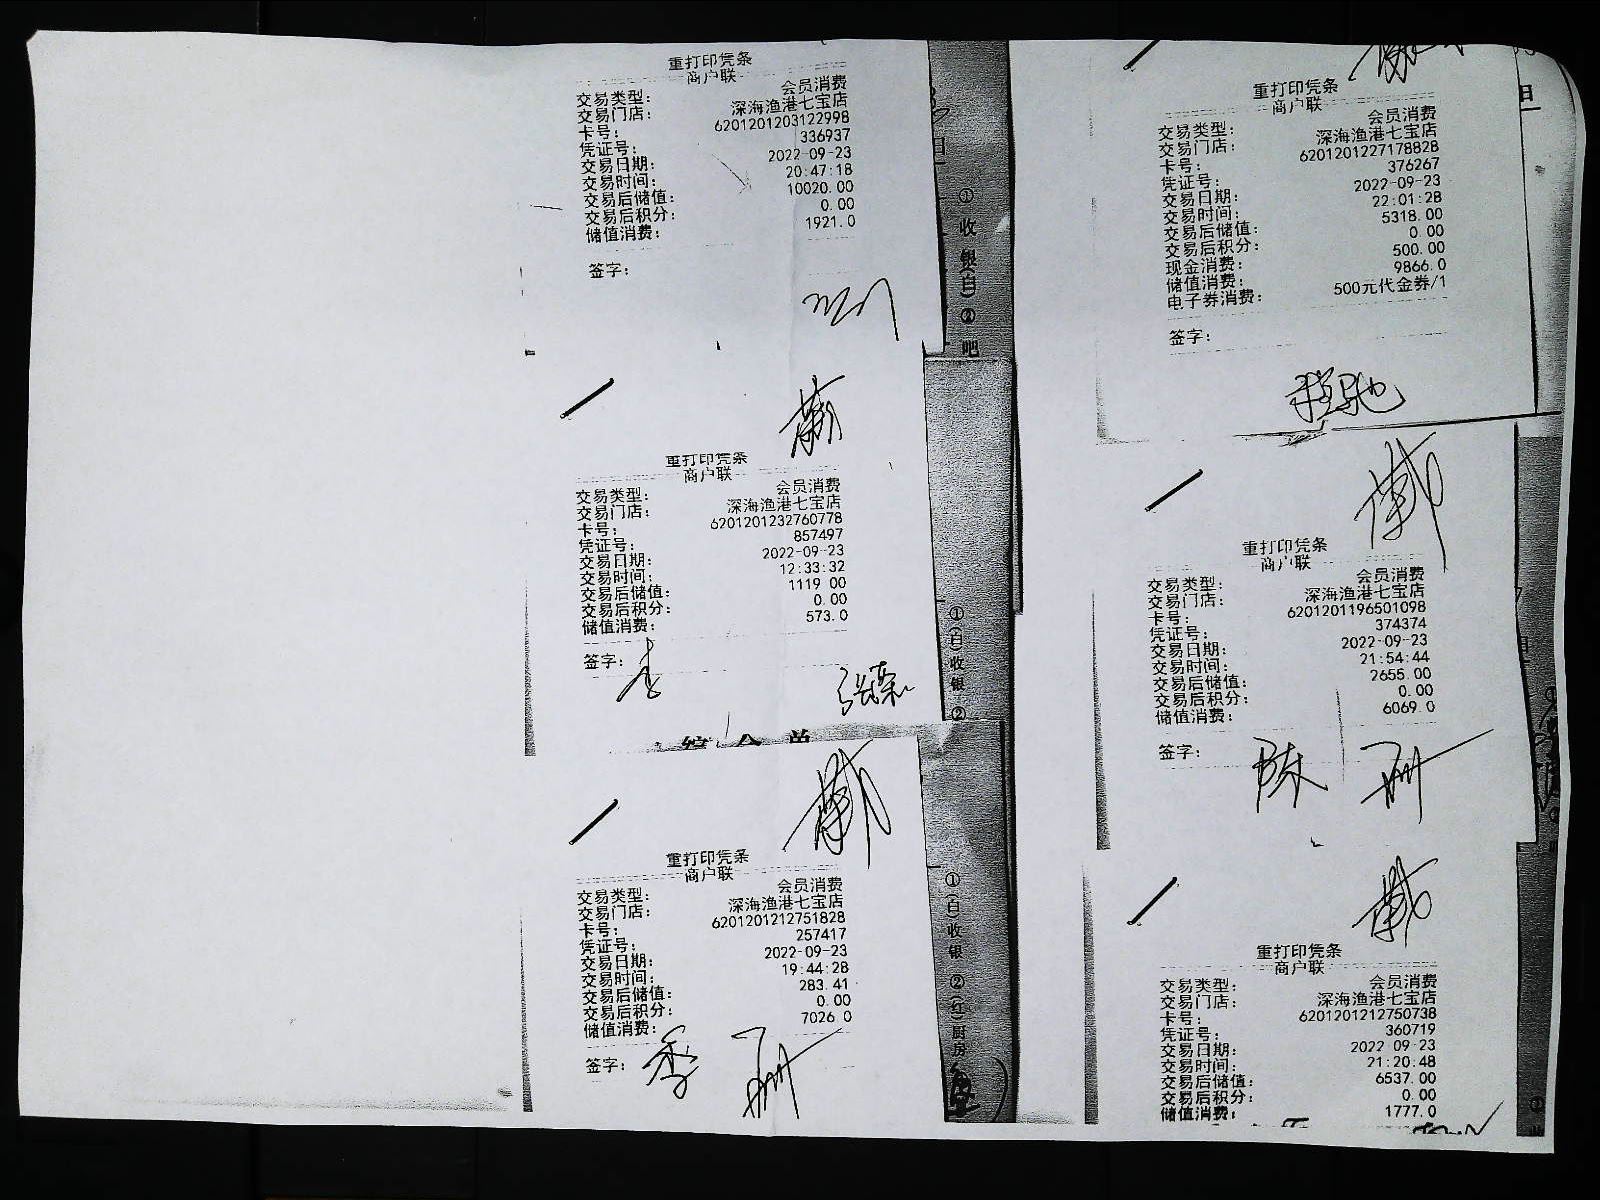 重打印凭条
商户联
交易类型： 会员消费
交易门店： 深海渔港七宝店
卡号： 6201201203122998
凭证号： 336937
交易日期： 2022-09-23
交易时间： 20:47:18
交易后储值： 10020.00
交易后积分： 0.00
储值消费： 1921.0
签字：
重打印凭条
商户联
交易类型： 会员消费
交易门店： 深海渔港七宝店
卡号： 6201201232760778
凭证号： 857497
交易日期： 2022-09-23
交易时间： 12:33:32
交易后储值： 1119.00
交易后积分： 0.00
储值消费： 573.0
签字：
重打印凭条
商户联
交易类型： 会员消费
交易门店： 深海渔港七宝店
卡号： 6201201212751828
凭证号： 257417
交易日期： 2022-09-23
交易时间： 19:44:28
交易后储值： 283.41
交易后积分： 0.00
储值消费： 7026.0
签字： 季
①收银(白)②吧
①(白)收银②
①(白)收银②(红)厨房
重打印凭条
商户联
交易类型： 会员消费
交易门店： 深海渔港七宝店
卡号： 6201201227178828
凭证号： 376267
交易日期： 2022-09-23
交易时间： 22:01:28
交易后储值： 5318.00
交易后积分： 0.00
现金消费： 500.00
储值消费： 9866.0
电子券消费： 500元代金券/1
签字：
程驰
重打印凭条
商户联
交易类型： 会员消费
交易门店： 深海渔港七宝店
卡号： 6201201196501098
凭证号： 374374
交易日期： 2022-09-23
交易时间： 21:54:44
交易后储值： 2655.00
交易后积分： 0.00
储值消费： 6069.0
签字： 陈
重打印凭条
商户联
交易类型： 会员消费
交易门店： 深海渔港七宝店
卡号： 6201201212750738
凭证号： 360719
交易日期： 2022-09-23
交易时间： 21:20:48
交易后储值： 6537.00
交易后积分： 0.00
储值消费： 1777.0